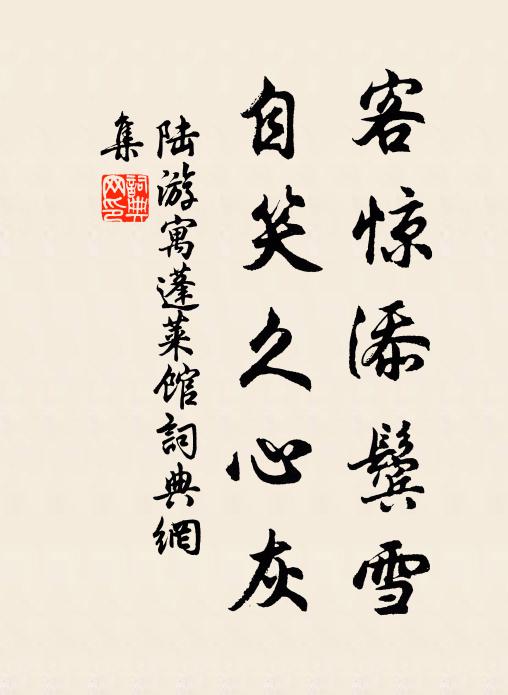 客惊添鬓雪
自笑久心灰
陆游寓蓬莱馆詞典網
集
詞典
网印